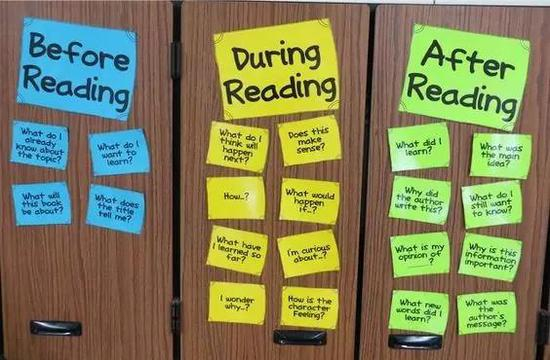 Before
Reading
What do I
already
know about
the topic?
What do I
want to
learn?
What will
this book
be about?
What does
the title
tell me?
During
Reading
What do I
think will
happen
next?
Does this
make
sense?
How..?
What would
happen
if..?
What have
I learned so
far?
I'm curious
about..?
I wonder
why..?
How is the
character
Feeling?
After
Reading
What did I
learn?
What was
the main
idea?
Why did
the author
write this?
What do I
still want
to know?
What is my
opinion of
____?
Why is this
information
important?
What new
words did I
learn?
What was
the
author's
message?